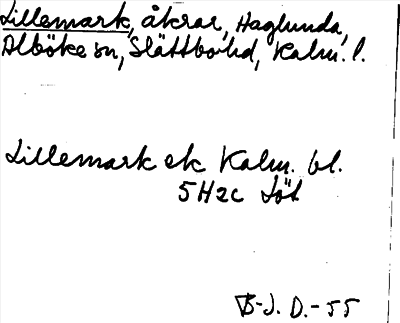 Lillemark, åkrar, Haglunda,
Alböke sn, Slättbo hd, Kalm. l.
Lillemark ek Kalm. bl.
5H2c Löt
B-J. D. - 55